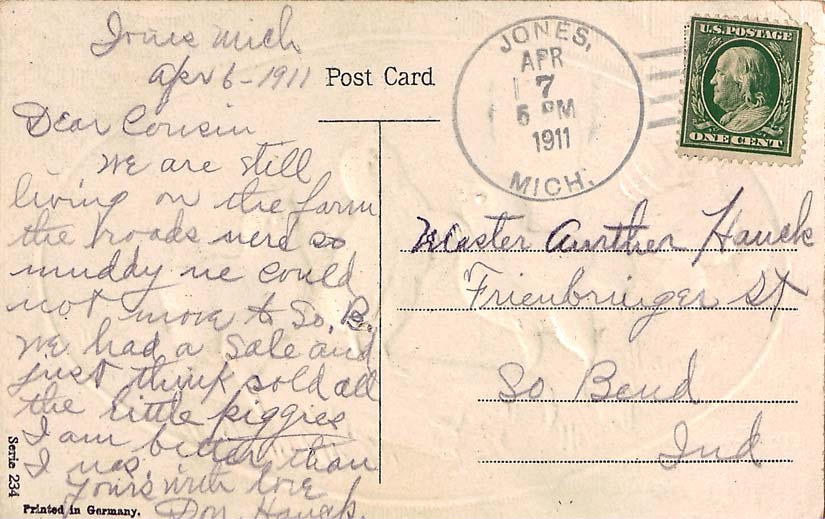 Jones Mich
Apr 6-1911
Post Card
Dear Cousin
We are still
living on the farm
the roads were so
muddy we could
not move to So. Be
We had a sale and
just think sold all
the little piggies
I am better than
I was.
Yours with love
Don Hauck.
JONES,
APR
7
5 PM
1911
MICH.
U.S. POSTAGE
ONE CENT
Master Aurther Hauck
Frienbringer St
So Bend
Ind
Serie 234
Printed in Germany.